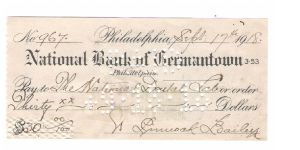 No. 967. Philadelphia, Sept. 17th 1918.
National Bank of Germantown 3-53
Philadelphia
Pay to The National Dental or order
Thirty xx Dollars
$30 00/100 Bailey